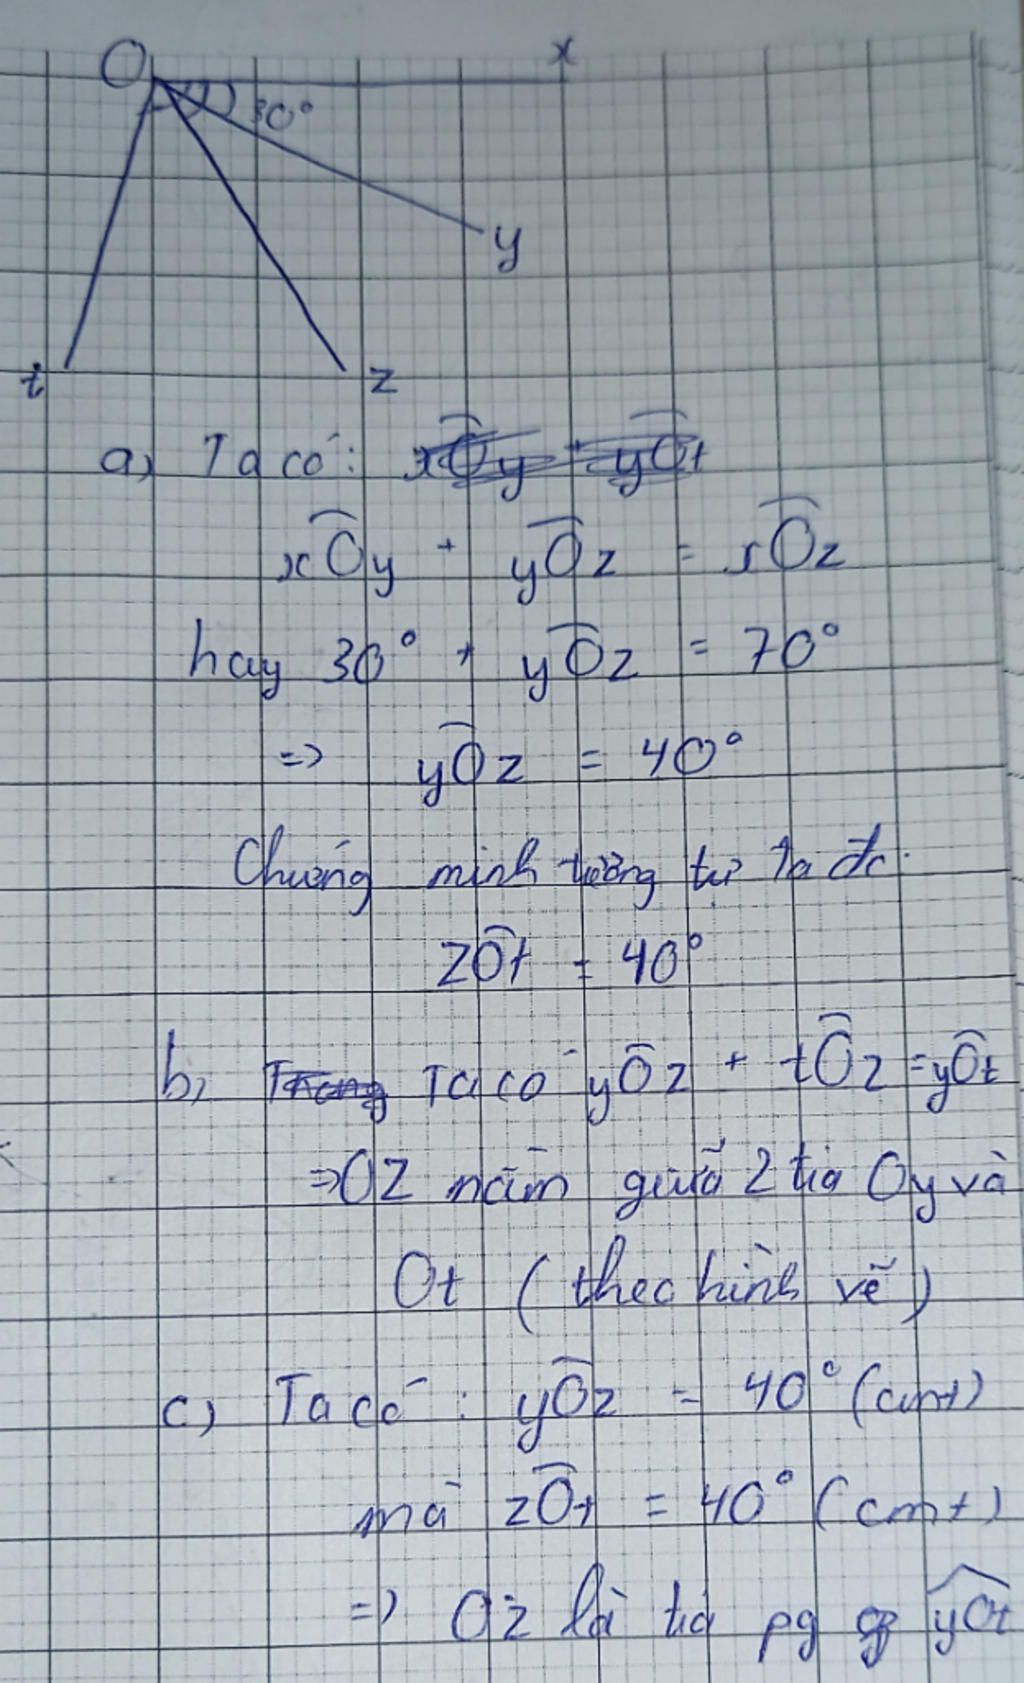 O x
30°
y
t z
a) Ta có: xOy + yOt
xOy + yOz = xOz
hay 30° + yOz = 70°
=> yOz = 40°
Chứng minh tương tự ta đc:
zOt = 40°
b) Trong Ta có yOz + tOz = yOt
=> OZ nằm giữa 2 tia Oy và
Ot (theo hình vẽ)
c) Ta có: yOz = 40° (cmt)
mà zOt = 40° (cmt)
=> Oz là tia pg của yOt